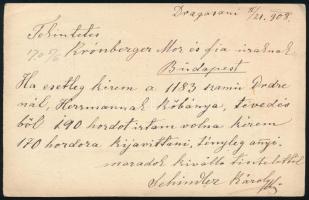 Dragasani 9/VI. 908.
Tekintetes
Krónberger Mór és fia uraknak
Budapest
Ha esetleg kérem a 1183 számú Ordre
nál, Herrmannak kőbánya, tévedés
ből 190 hordót irtam volna kérem
170 hordóra kijavittani, tényleg anyi.
maradok kiváló tisztelettel
Schindler Károly